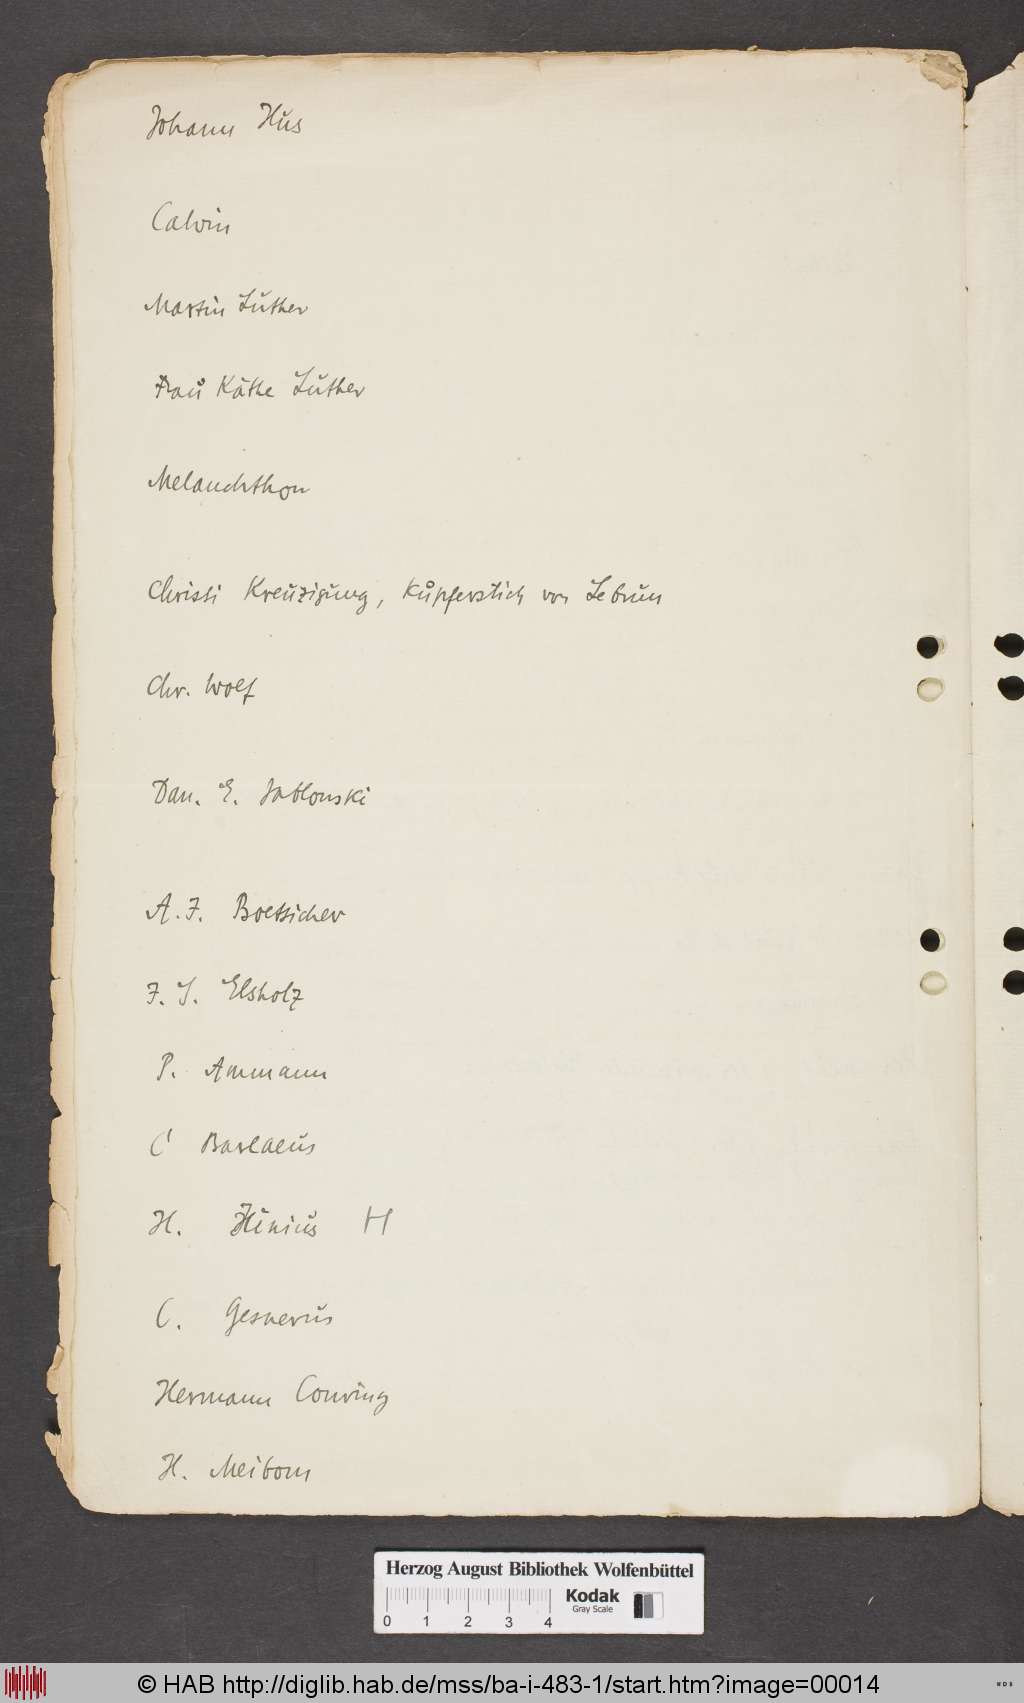 Johann Hus
Calvin
Martin Luther
Frau Käthe Luther
Melanchthon
Christi Kreuzigung, Kupferstich von Lebrun
Chr. Wolf
Dan. E. Jablonski
A. F. Boettticher
F. S. Elsholz
P. Ammann
C Barlaeus
H. Hunius H
C. Gesnerus
Hermann Conring
H. Meibom
Herzog August Bibliothek Wolfenbüttel
0 1 2 3 4
Kodak
Gray Scale
© HAB http://diglib.hab.de/mss/ba-i-483-1/start.htm?image=00014